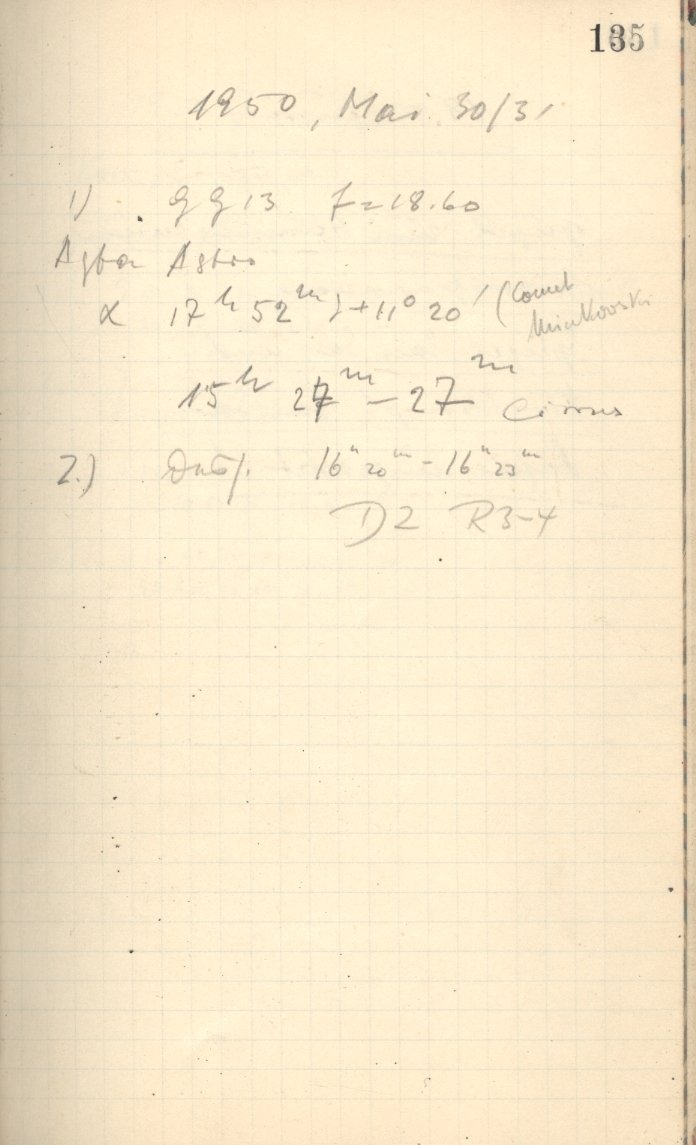 135
1950, Mai 30/31
1) GG 13 F=18.60
Agfa Astro
α 17h 52m δ +11° 20' (Comet
Minkowski
15h 27m – 27m Cirrus
2.) 16h 20m – 16h 23m
D2 R3-4